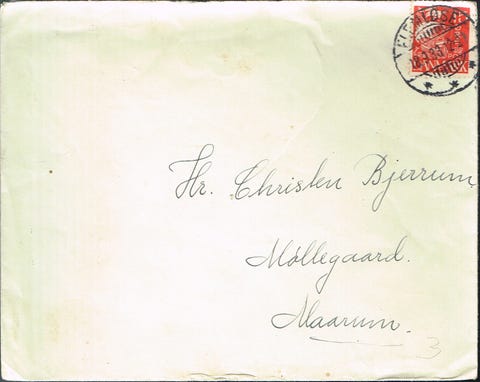 Hr. Christen Bjerrum
Møllegaard.
Maarum.
3